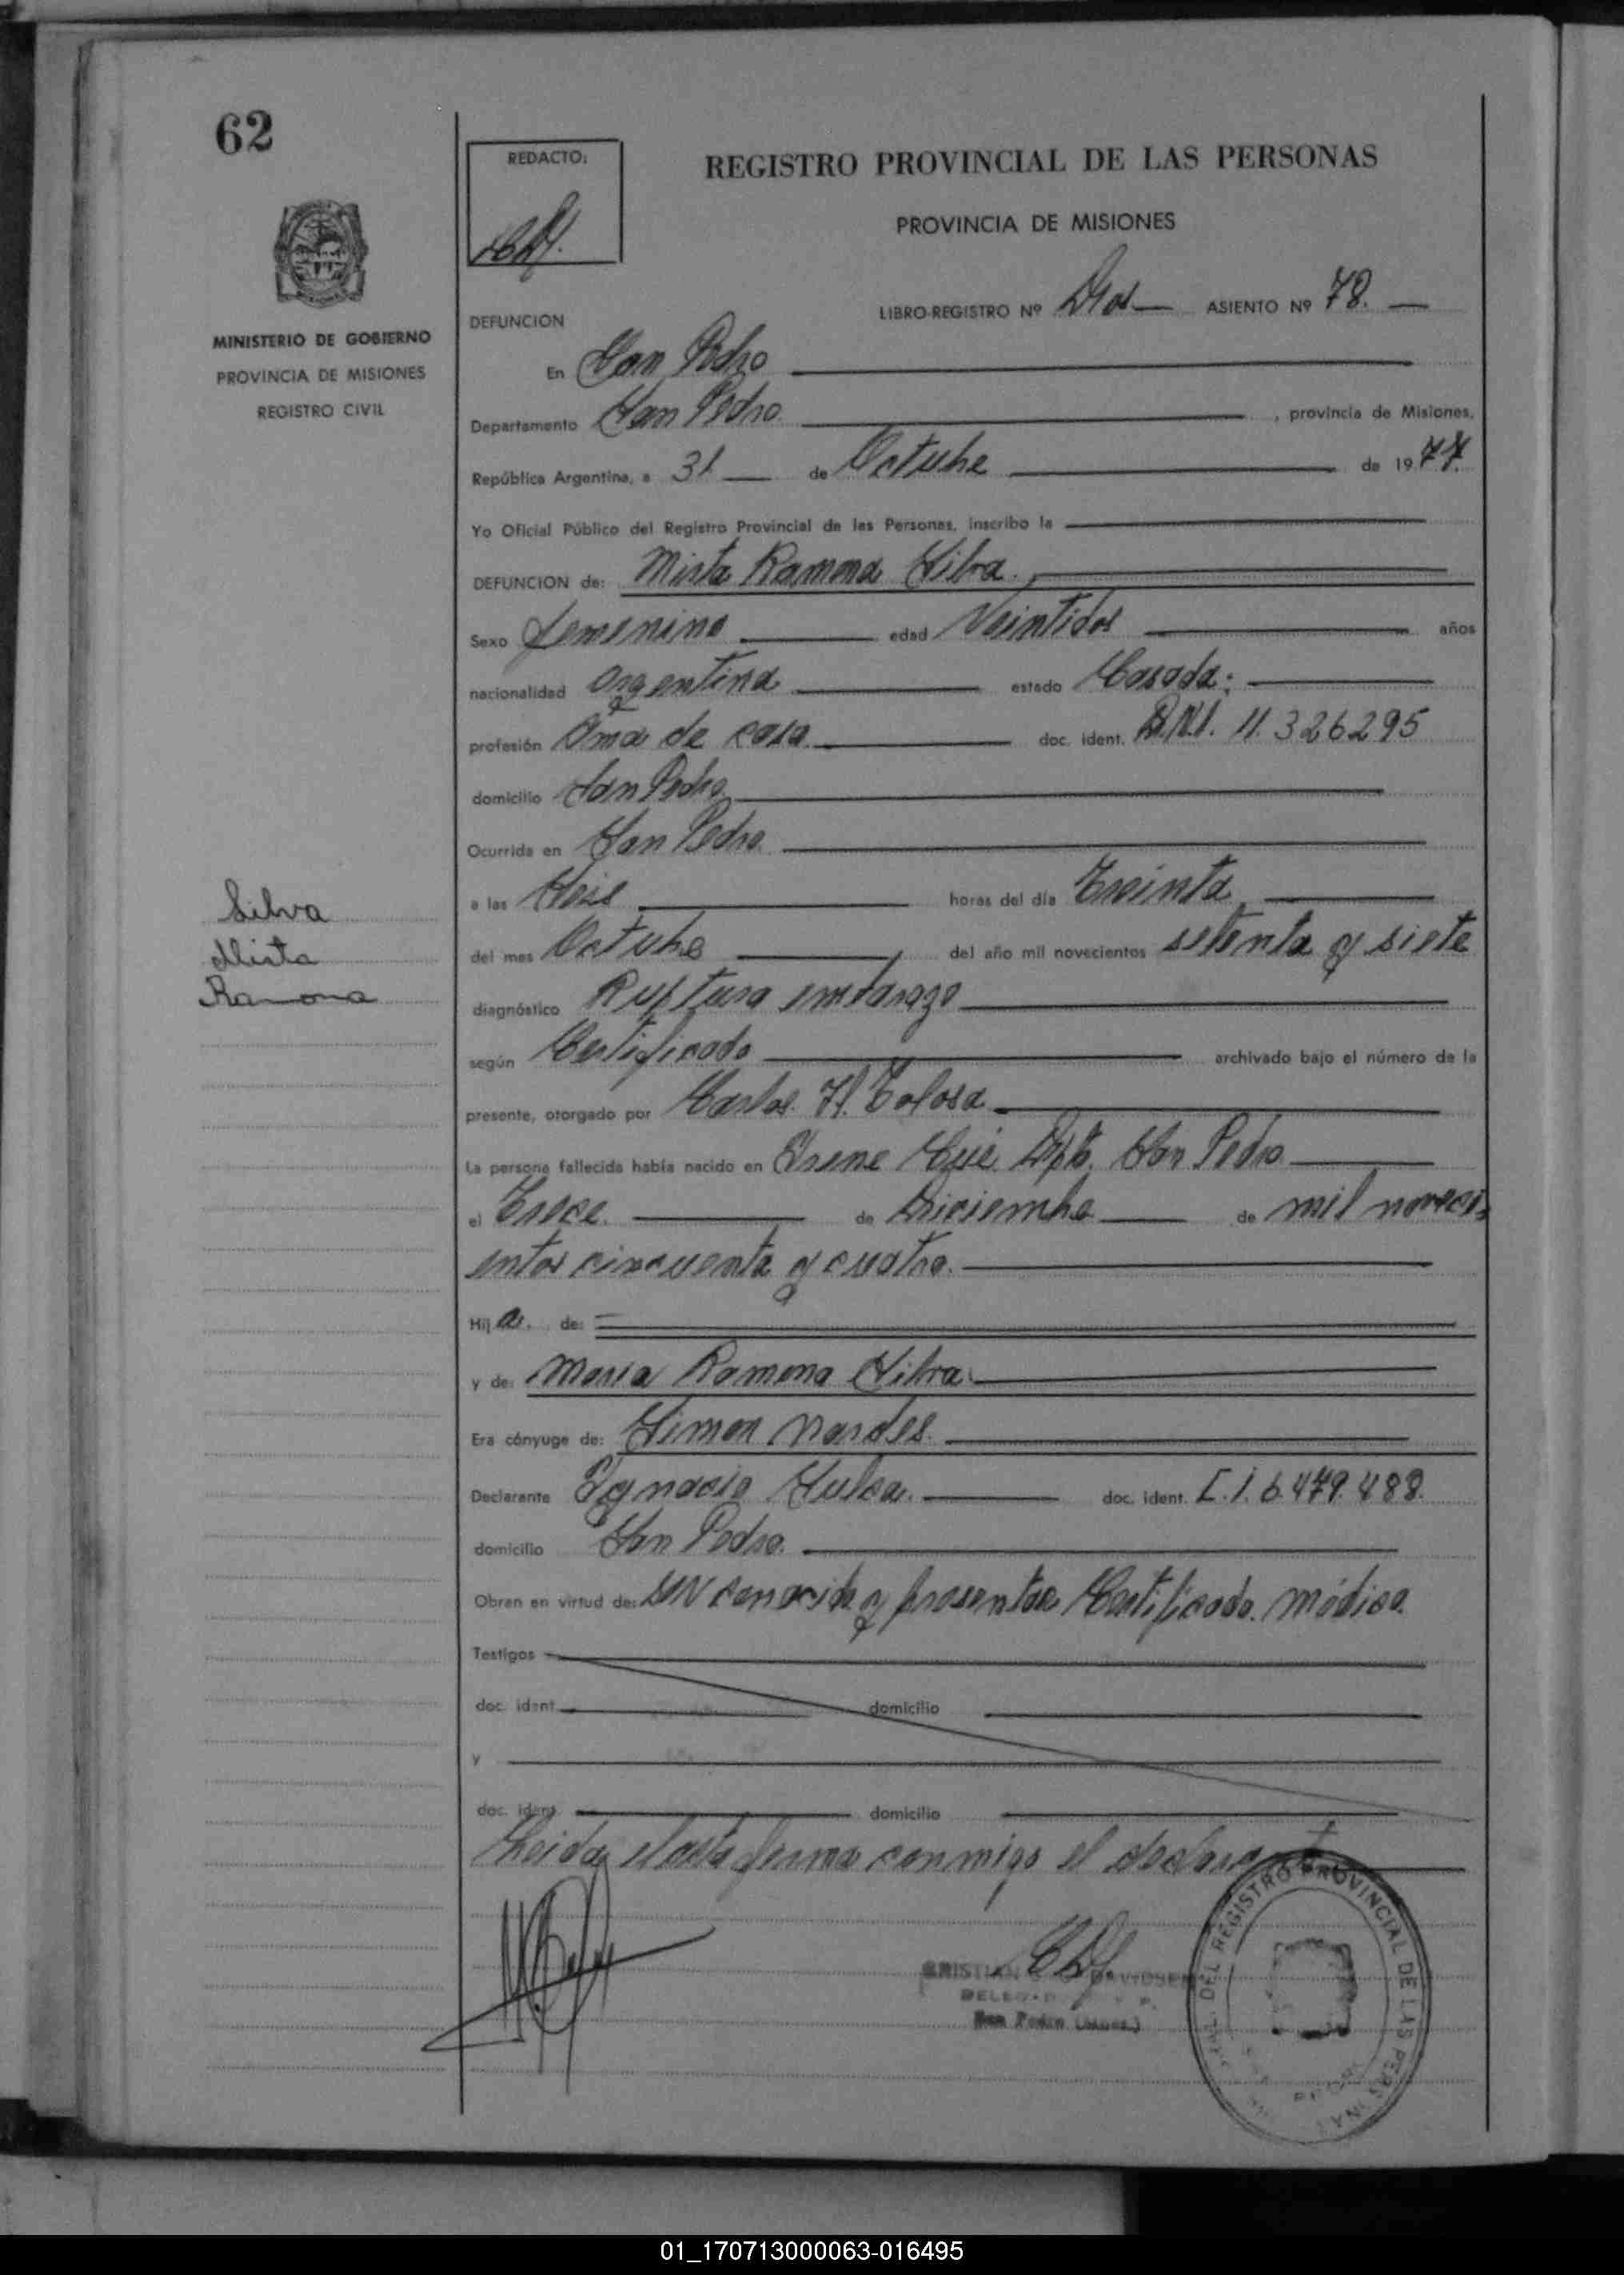 62
REDACTO:
REGISTRO PROVINCIAL DE LAS PERSONAS
PROVINCIA DE MISIONES
MINISTERIO DE GOBIERNO
PROVINCIA DE MISIONES
REGISTRO CIVIL
LIBRO-REGISTRO Nº Dos ASIENTO Nº 78.
DEFUNCION
En San Pedro
Departamento San Pedro , provincia de Misiones,
República Argentina, a 31 de Octubre de 1977.
Yo Oficial Público del Registro Provincial de las Personas, inscribo la
DEFUNCION de: Mirta Ramona Silva.
Sexo Femenino edad Veintidos años
nacionalidad Argentina estado Casada;
profesión Ama de casa doc. ident. D.N.I. 11.326295
domicilio San Pedro
Ocurrida en San Pedro
a las Seis horas del día Treinta
del mes Octubre, del año mil novecientos setenta y siete
diagnóstico Ruptura embarazo
según Certificado archivado bajo el número de la
presente, otorgado por Carlos H. Tolosa
La persona fallecida había nacido en Irene Cué Dpto. San Pedro
el Trece de Diciembre de mil noveci
entos cincuenta y cuatro.
Hija. de:
y de: Maria Ramona Silva
Era cónyuge de: Simon Nardes.
Declarante Ignacio doc. ident. C.I. 6.479.488.
domicilio San Pedro.
Obran en virtud de: ser conocido y presentar Certificado. médico.
Testigos
doc. ident. domicilio
y
doc. ident. domicilio
Leida el acta firma conmigo el declarante
Silva
Mirta
Ramona
San Pedro
DEL REGISTRO PROVINCIAL DE LAS PERSONAS
01_170713000063-016495